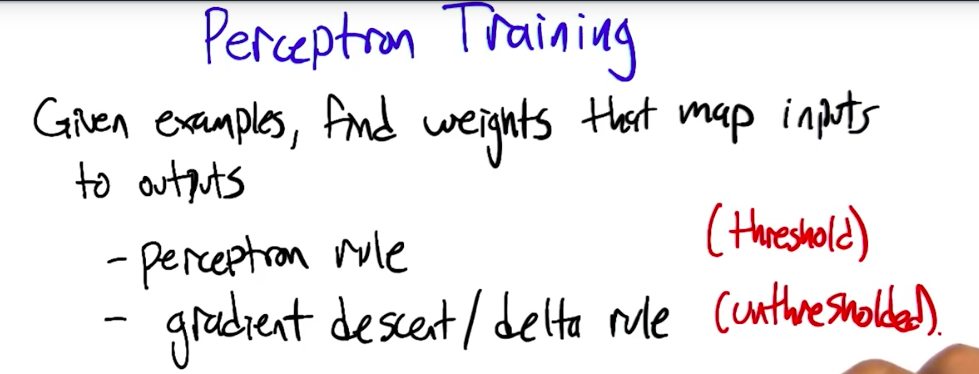 Perceptron Training
Given examples, find weights that map inputs
to outputs
- perceptron rule (threshold)
- gradient descent/delta rule (unthresholded).